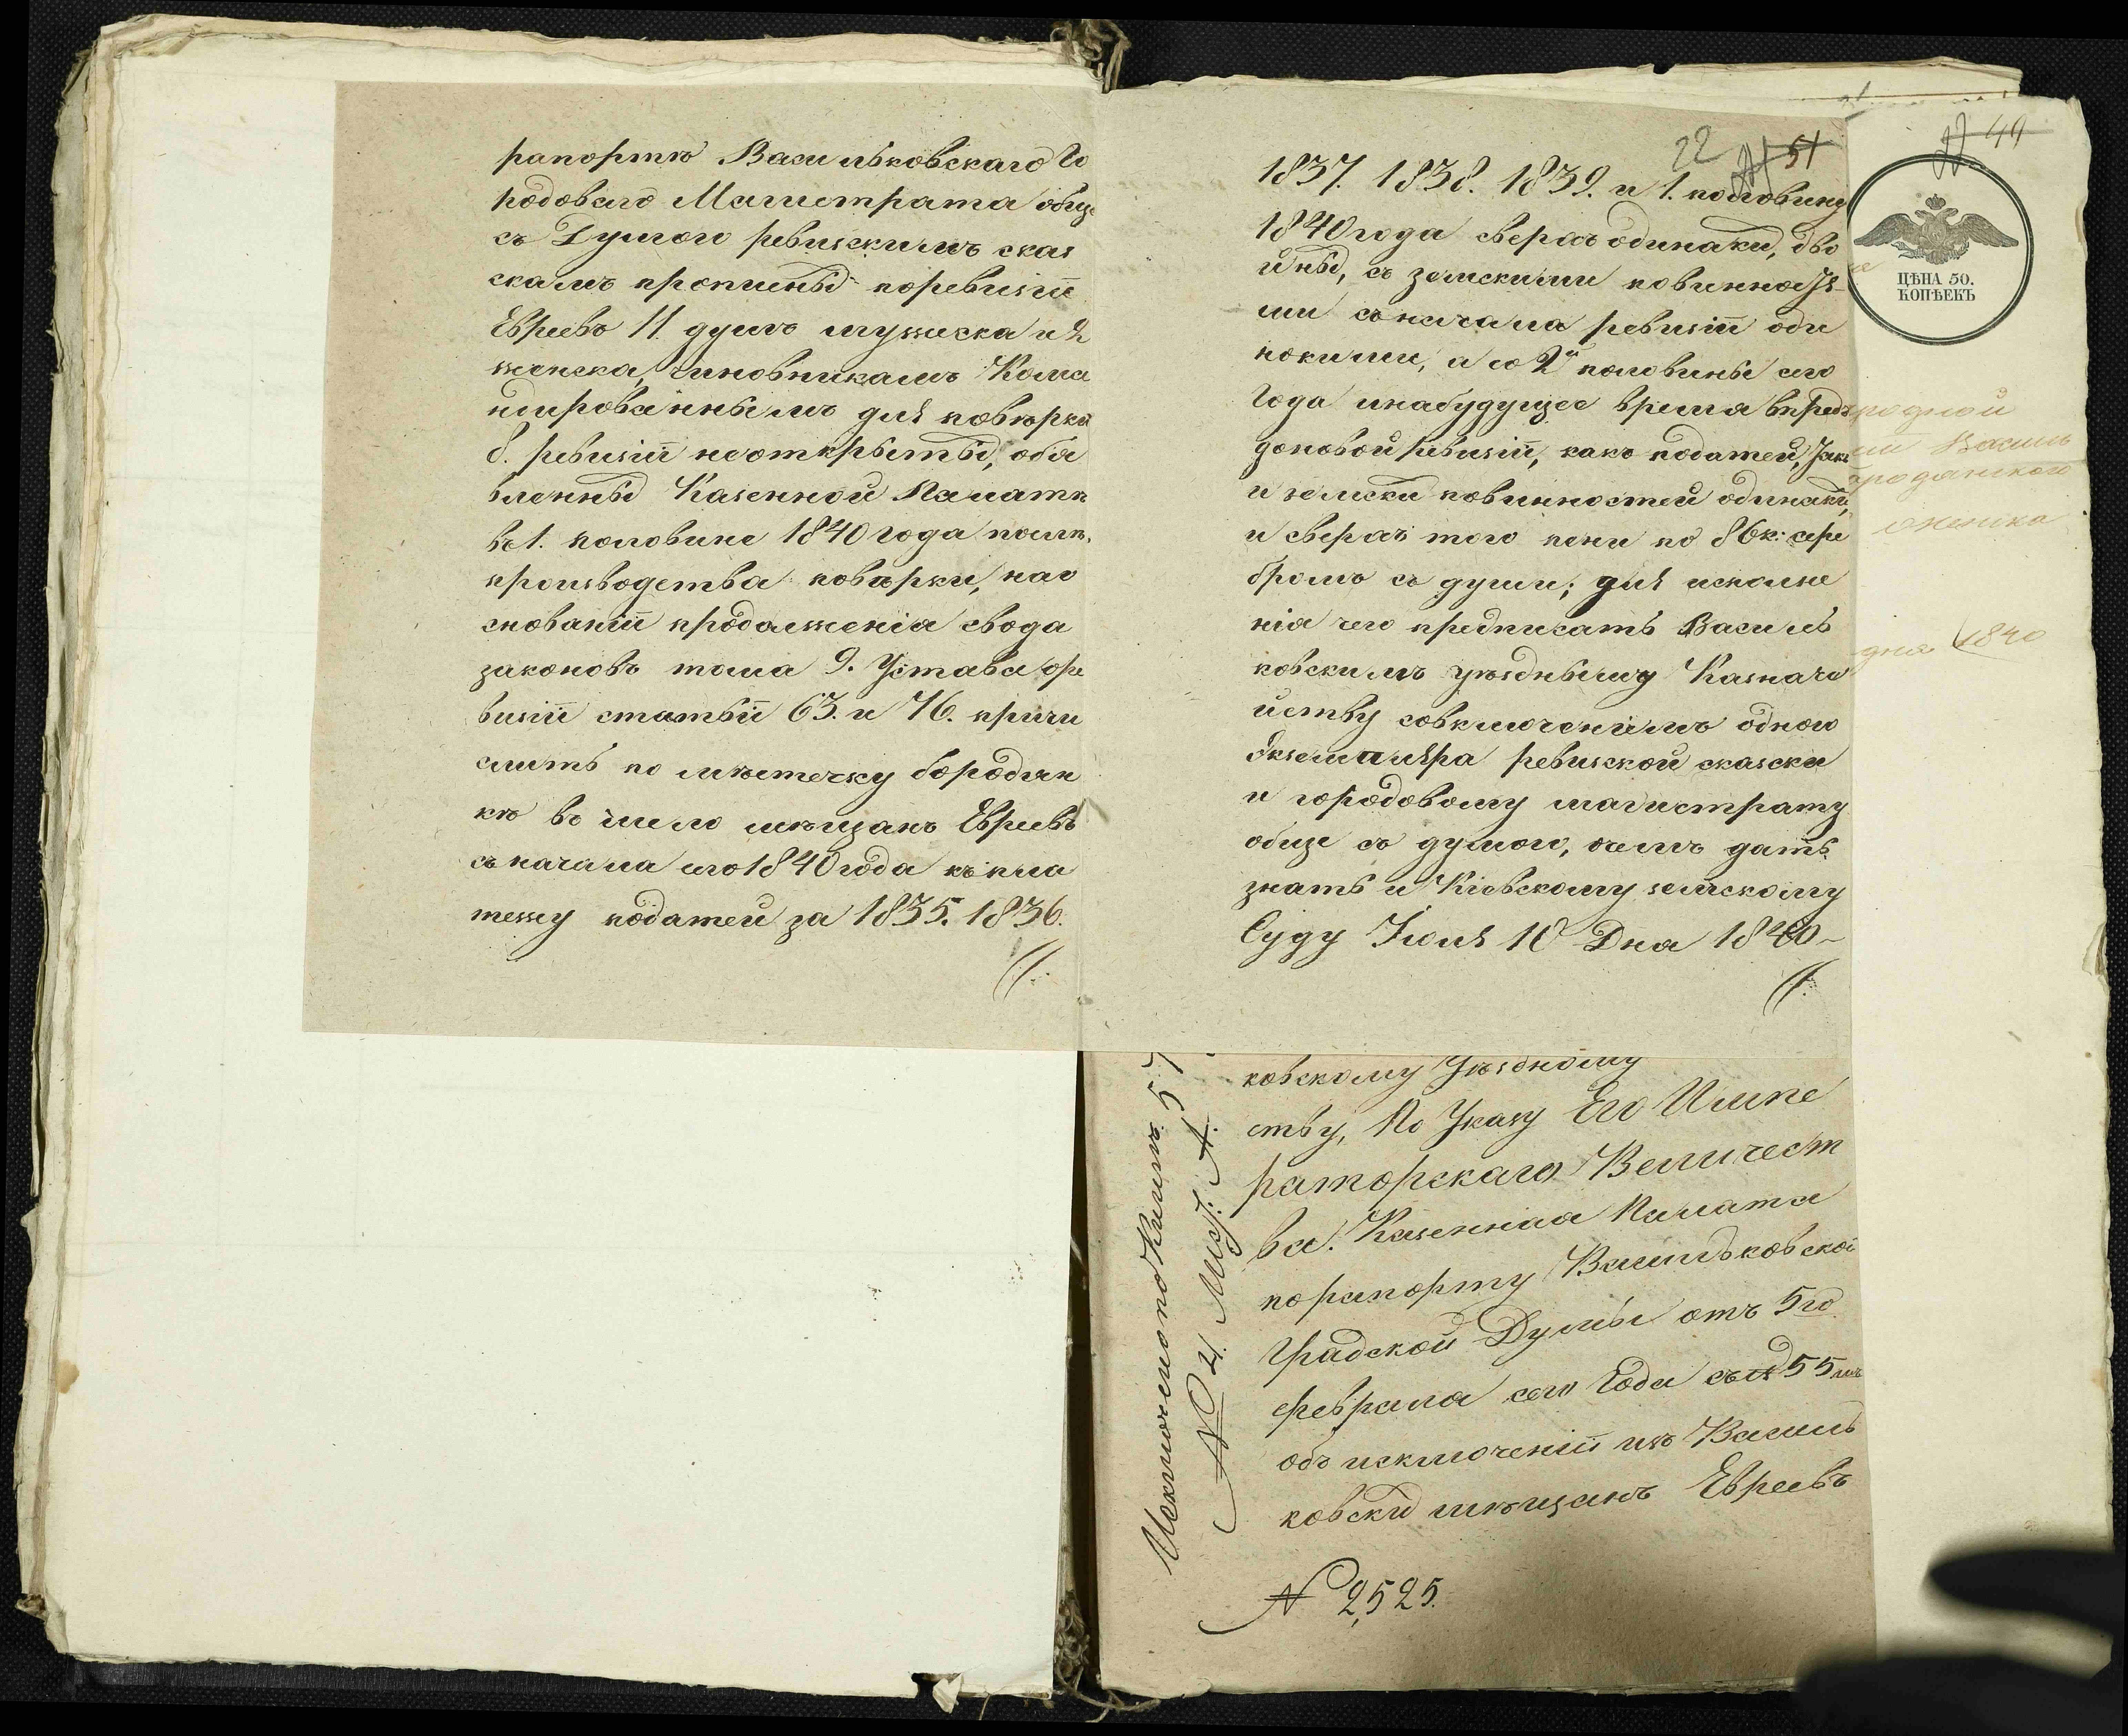 рапортѣ Васильковскаго Го
родоваго Магистрата обще
съ Думою ревизскимъ скаs
скамъ прописны̃ поревизіи
Евреевъ 11 душъ мужеска и 2
женска, чиновникамъ Кома
ндированнымъ для повѣрки
8. ревизіи неоткрыты̃, объя
вленны̃ Казенной Палатѣ
въ 1. половине 1840 года послѣ
производства повѣрки, нао
снованіи продолженія свода
законовъ тома 9. Устава оре
визіи статьи 63. и 76. причи
слить по мѣстечку бородян
кѣ въ число мѣщанъ Евреевъ
съ начала сего 1840 года къ пла
тежу податей за 1835. 1836.
22 51
1837. 1838. 1839. и 1. половину
1840 года сверхъ одинаки, дво
йны̃, съ земскими повинностя
ми съ начала ревизіи оди
нокими, а со 2й половины сего
Года инабудущее время впредь
доновой ревизіи, какъ податей, такъ
и земски повинностей одинаки,
и сверхъ того пени по 86 к: сере
бромъ съ души; для исполне
нія чего предписать Василь
ковскимъ уѣздному Казначе
йству совключеніемъ одного
экземпляра ревизской сказски
и городовому магистрату
обще съ думою, очемъ дать
знать и Кіевскому земскому
Суду Іюля 10 Дня 1840
49
ЦѢНА 50.
КОПѢЕКЪ
родной
Василь
дня 1840
ковскому Уѣздному
ству, По Указу Его Импе
раторскаго Величест
ва. Казенная Палата
порапорту Васильковской
Градской Думы отъ 5го
февраля сего Года съ 55мъ
объ исключеніи изъ Василь
ковски̃ мѣщанъ Евреевъ
№ 2,525.
Исключено по Книгѣ 57
№ 4. Лист: А.